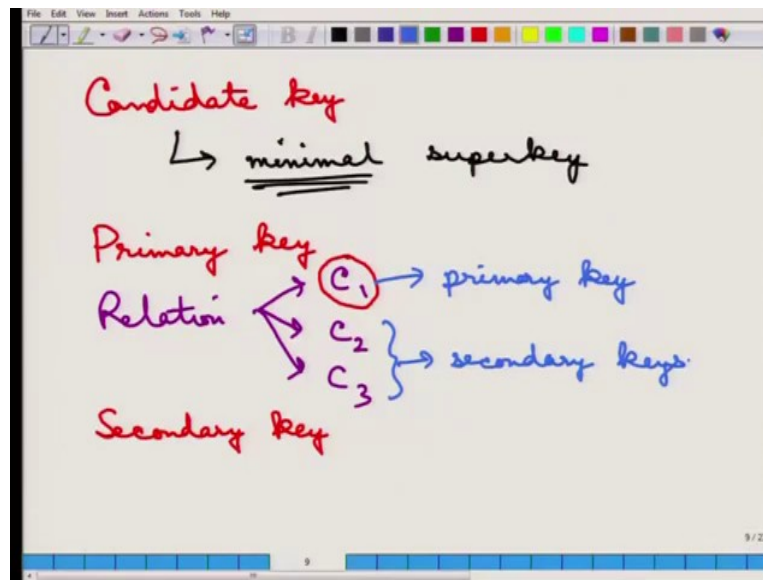 File Edit View Insert Actions Tools Help
B I
Candidate key
↳ minimal superkey
Primary key
Relation
C₁ → primary key
C₂
C₃
} → secondary keys.
Secondary key
9/2
9